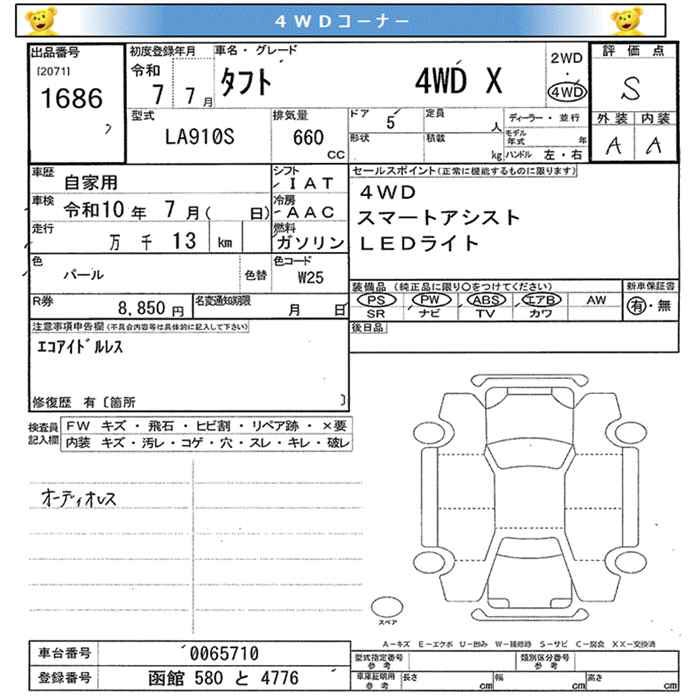 4WDコーナー
出品番号
[2071]
1686
初度登録年月
令和
7 7月
車名・グレード
タフト 4WD X
2WD
・
4WD
評価点
S
外装 内装
A A
型式
LA910S
排気量
660
CC
ドア 5
定員 人
形状
積載 kg
ディーラー・並行
モデル年式 年
ハンドル 左・右
車歴 自家用
車検 令和10年 7月( 日)
走行 万 千 13 km
シフト IAT
冷房 AAC
燃料 ガソリン
色 パール 色替
色コード W25
R券 8,850円
名変通知期限 月 日
セールスポイント(正常に機能するものに限ります)
4WD
スマートアシスト
LEDライト
装備品 (純正品に限り○をつけてください)
PS PW ABS エアB AW
SR ナビ TV カワ
新車保証書
有・無
後日品
注意事項申告欄(不具合内容等は具体的に記入して下さい)
エコアイドルレス
修復歴 有〔箇所 〕
検査員記入欄
FW キズ・飛石・ヒビ割・リペア跡・×要
内装 キズ・汚レ・コゲ・穴・スレ・キレ・破レ
オーディオレス
スペア
A-キズ E-エクボ U-凹み W-補修跡 S-サビ C-腐食 XX-交換済
車台番号 0065710
登録番号 函館 580 と 4776
型式指定番号 参考
類別区分番号 参考
車庫証明用 参考
長さ cm 幅 cm 高さ cm